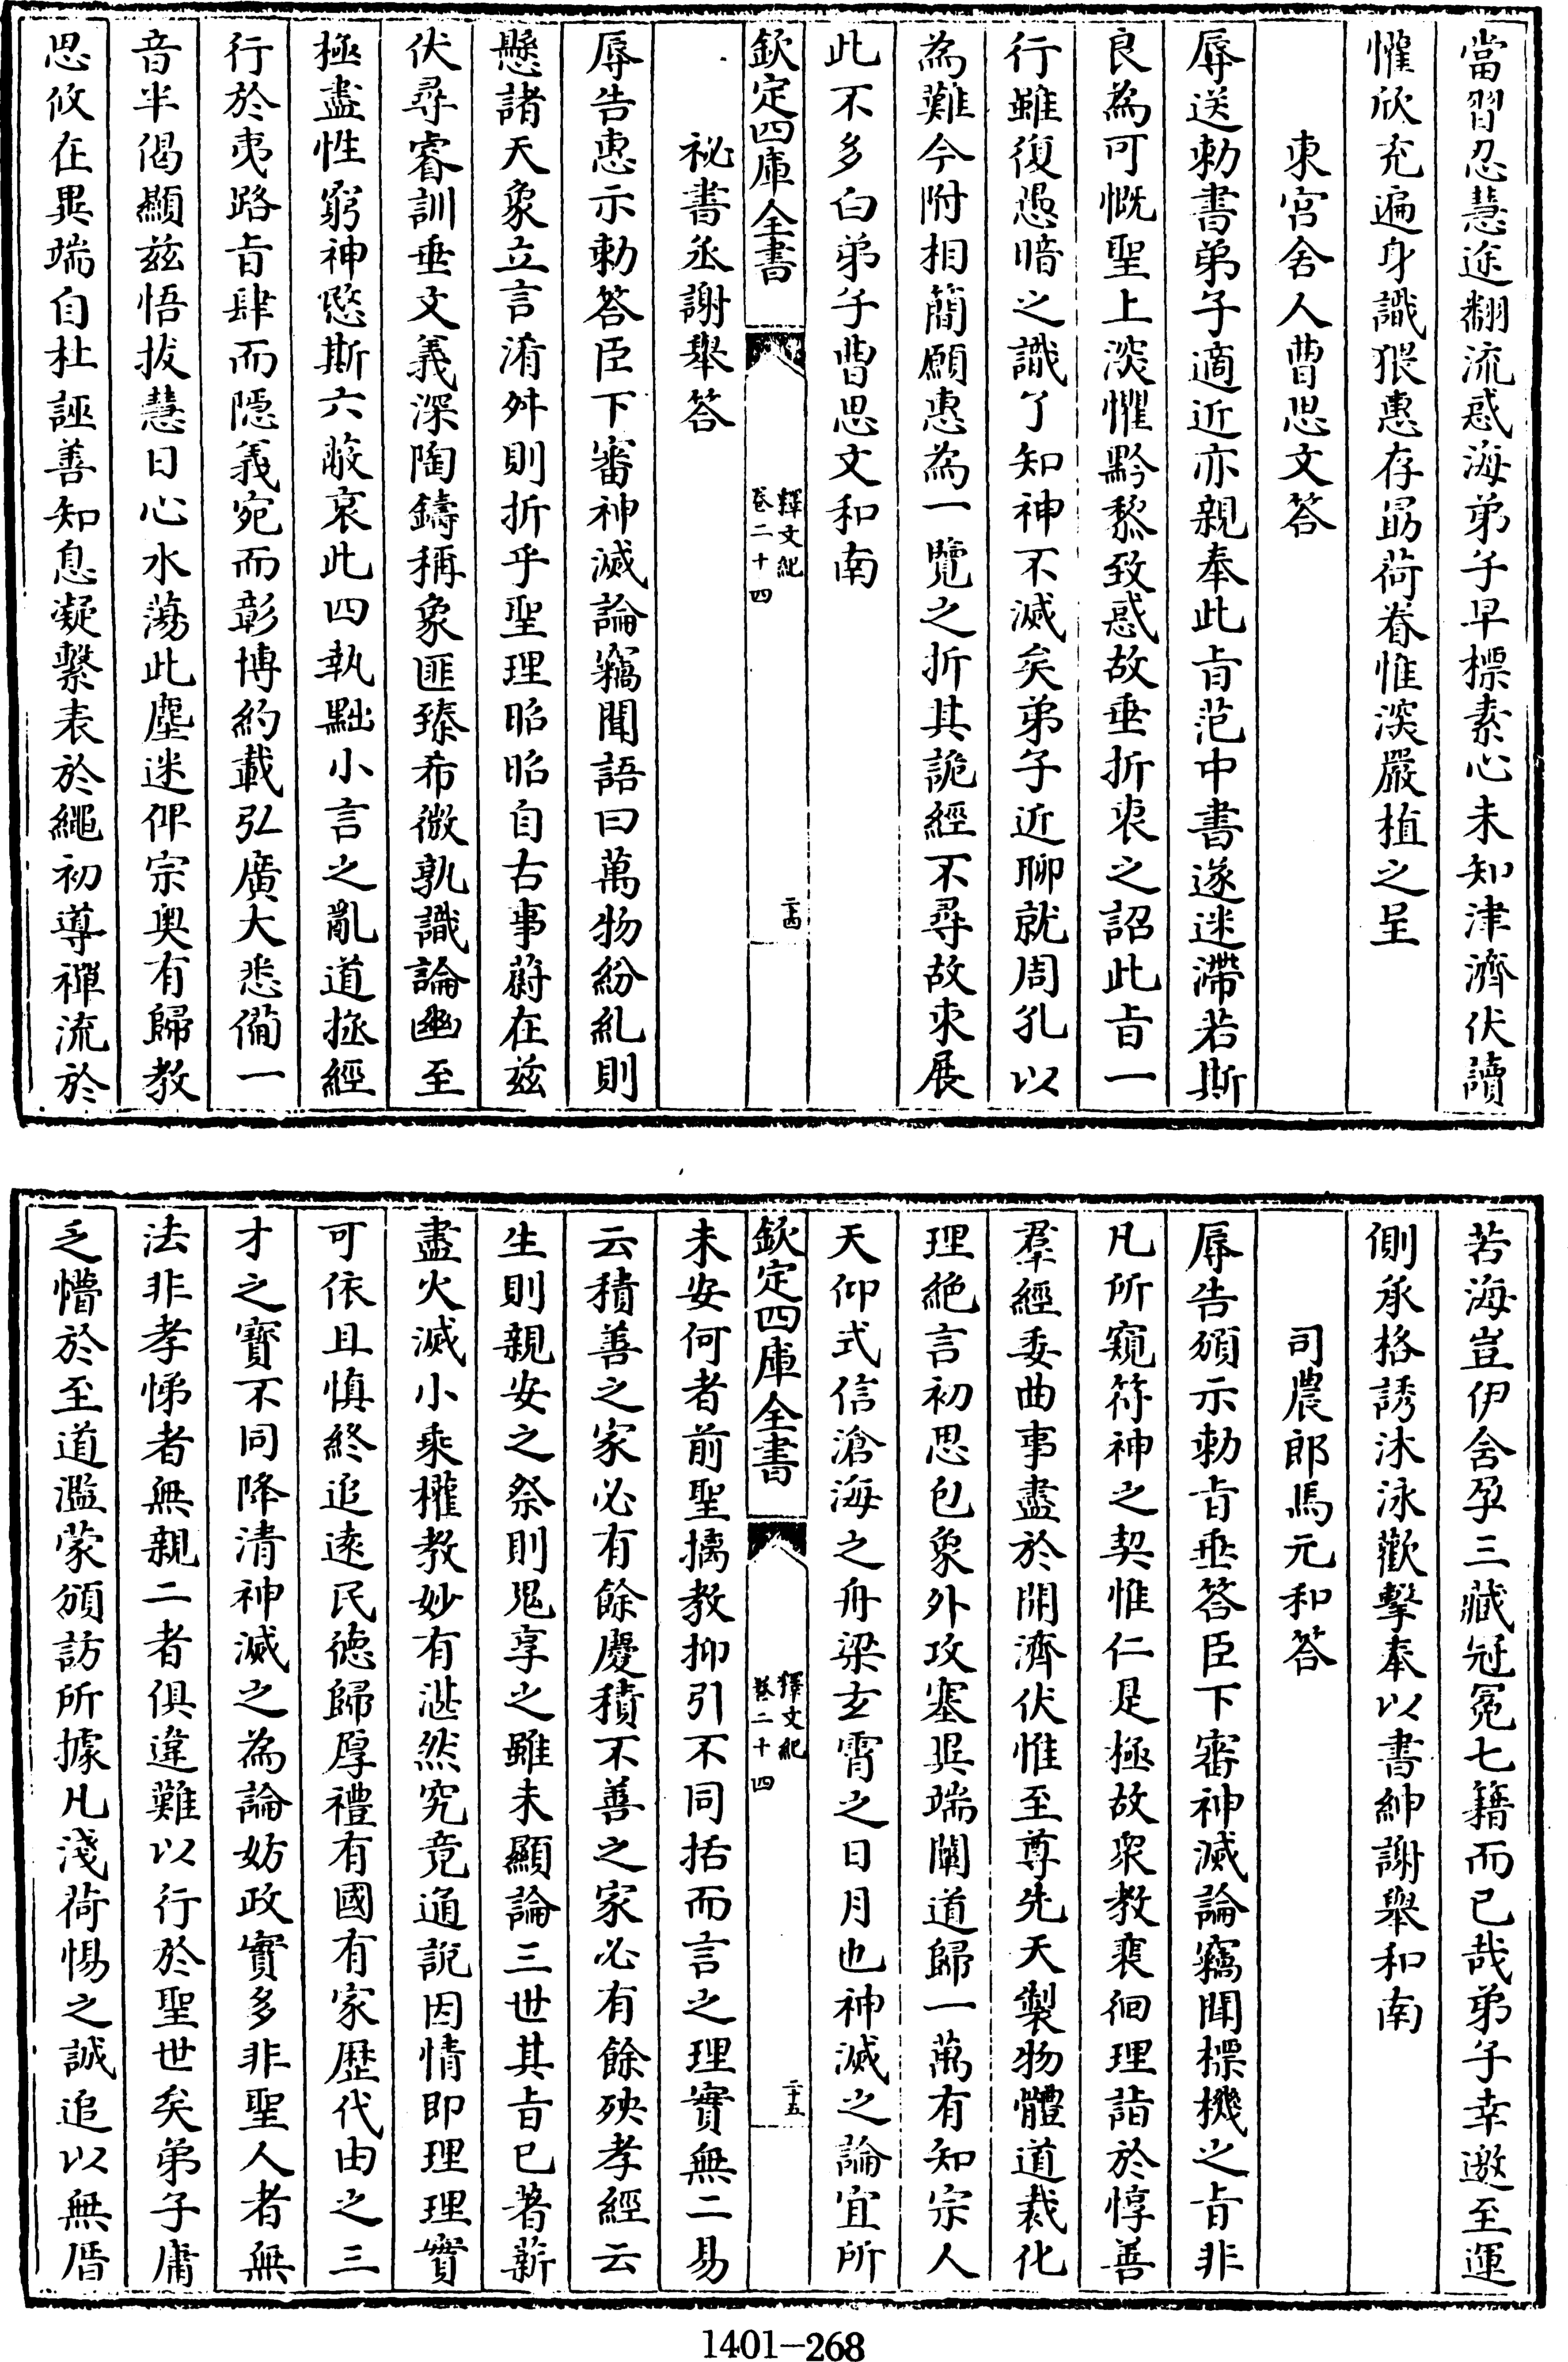 當習忍慧途翻流惑海弟子早標素心未知津濟伏讀
懽欣充遍身識猥惠存勗荷眷惟深嚴植之呈
東宮舍人曹思文答
辱送勅書弟子適近亦親奉此旨范中書遂迷滯若斯
良為可慨聖上深懼黔黎致惑故垂折衷之詔此旨一
行雖復愚暗之識了知神不滅矣弟子近聊就周孔以
為難今附相簡願惠為一覽之折其詭經不尋故來展
此不多白弟子曹思文和南
欽定四庫全書
釋文紀
卷二十四
二十四
祕書丞謝舉答
辱告惠示勅答臣下審神滅論竊聞語曰萬物紛糺則
懸諸天象立言淆舛則折乎聖理昭昭自古事蔚在兹
伏尋睿訓垂文義深陶鑄稱象匪臻希微孰識論幽至
極盡性窮神愍斯六蔽哀此四執黜小言之亂道拯經
行於夷路旨肆而隱義宛而彰博約載弘廣大悉僃一
音半偈顯兹悟拔慧日心水蕩此塵迷仰宗奥有歸教
思攸在異端自杜誣善知息凝繫表於繩初導禪流於
若海豈伊含孕三藏冠冕七籍而已哉弟子幸邀至運
側承格誘沐泳歡擊奉以書紳謝舉和南
司農郎馬元和答
辱告頒示勅旨垂答臣下審神滅論竊聞標機之旨非
凡所窺符神之契惟仁是極故衆教裴徊理詣於惇善
羣經委曲事盡於開濟伏惟至尊先天製物體道裁化
理絶言初思包象外攻塞異端闡道歸一萬有知宗人
天仰式信滄海之舟梁玄霄之日月也神滅之論宜所
欽定四庫全書
釋文紀
卷二十四
二十五
未安何者前聖摛教抑引不同括而言之理實無二易
云積善之家必有餘慶積不善之家必有餘殃孝經云
生則親安之祭則鬼享之雖未顯論三世其旨已著薪
盡火滅小乘權教妙有湛然究竟通説因情即理理實
可依且慎終追逺民徳歸厚禮有國有家歴代由之三
才之寳不同降清神滅之為論妨政實多非聖人者無
法非孝悌者無親二者俱違難以行於聖世矣弟子庸
乏懵於至道濫蒙頒訪所據凡淺荷惕之誠追以無厝
1401-268